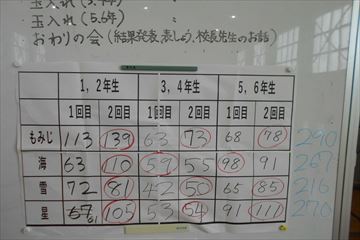 玉入れ(3.4年)
玉入れ(5.6年)
おわりの会(結果発表、表しょう、校長先生のお話)
1,2年生 3,4年生 5,6年生
1回目 2回目 1回目 2回目 1回目 2回目
もみじ 113 139 63 73 68 78 290
海 63 110 59 55 98 91 267
雪 72 81 42 50 65 85 216
星 67 61 105 53 54 91 111 270